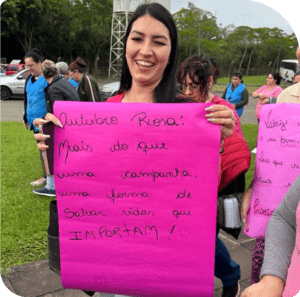 Outubro Rosa:
Mais do que
uma campanha,
uma forma de
Salvar vidas que
IMPORTAM!